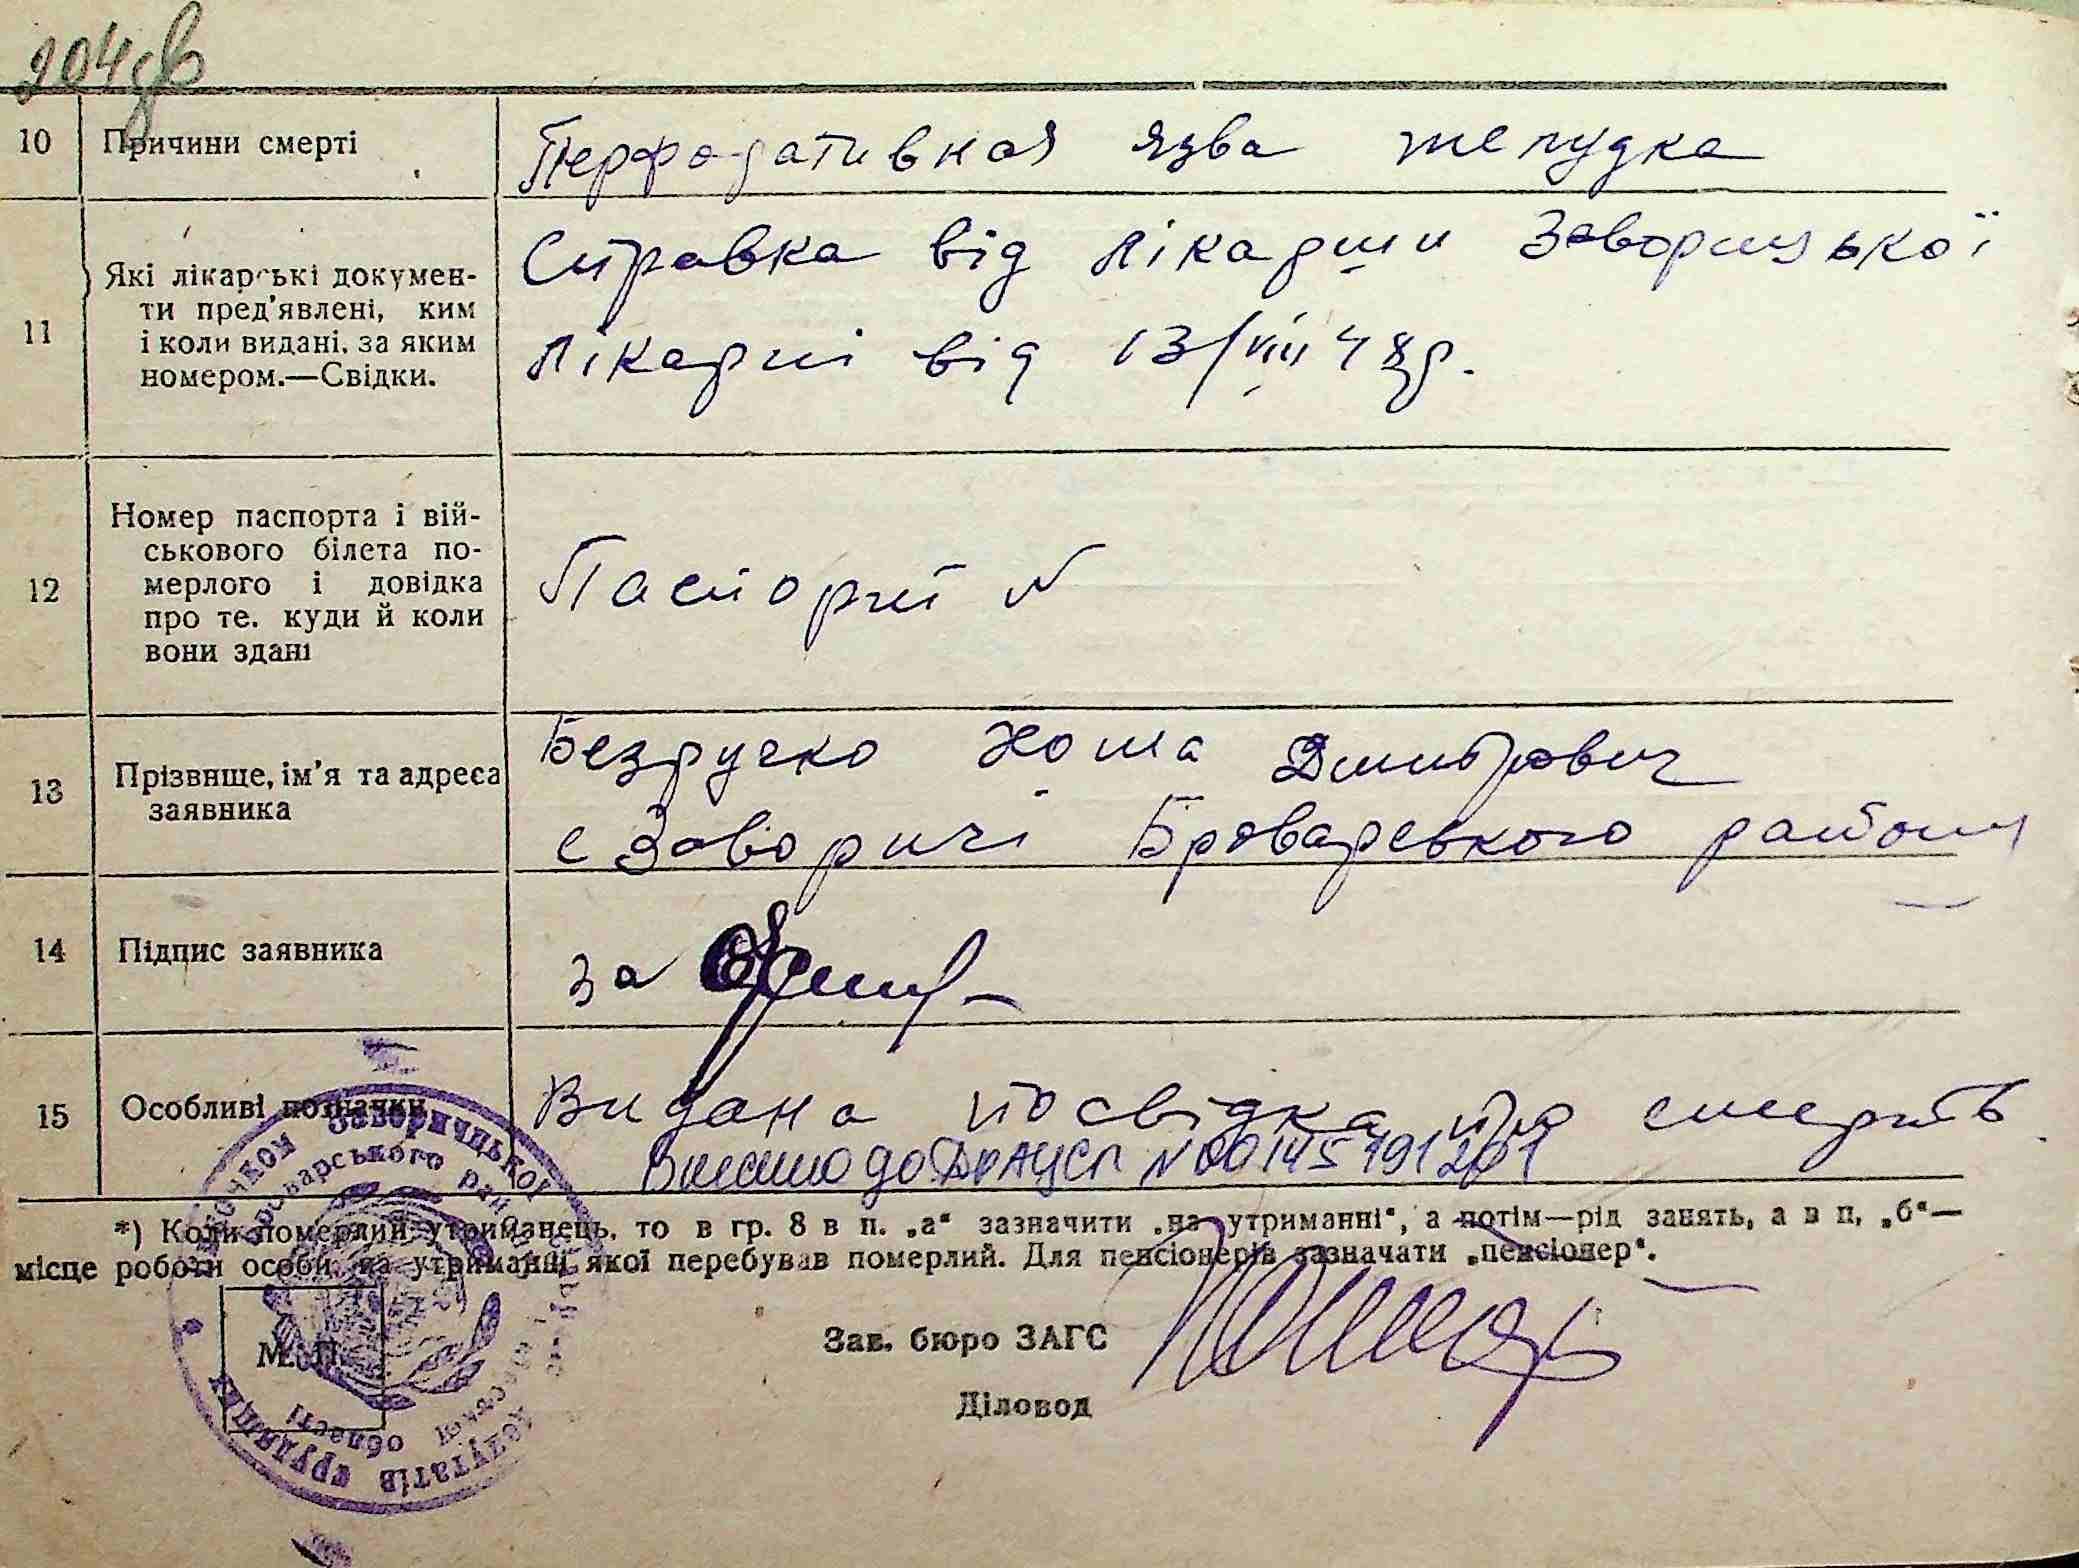 204зв
10 Причини смерті Перфоративная язва желудка
11 Які лікарські докумен-
ти пред'явлені, ким
і коли видані, за яким
номером.—Свідки.
Справка від лікарши Заворицької
лікарні від 13/VIII 48р.
12 Номер паспорта і вій-
ськового білета по-
мерлого і довідка
про те. куди й коли
вони здані
Паспорт №
13 Прізвище, ім'я та адреса
заявника
Безручко Хома Дмитрович
с Заворичі Броварського району
14 Підпис заявника за
15 Особливі позначки Видана посвідка про смерть
Внесено до ДРАЦСГ №00145191201
*) Коли померлий утриманець, то в гр. 8 в п. „а“ зазначити „на утриманні“, а потім—рід занять, а в п, „б“—
місце роботи особи, на утриманні якої перебував померлий. Для пенсіонерів зазначати „пенсіонер“.
Зав. бюро ЗАГС
Діловод
М. П.
Заворицької
Броварського
депутатів трудящих
області